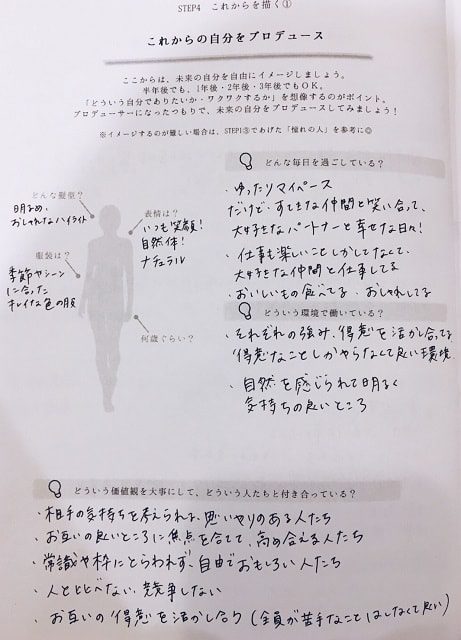 STEP4 これからを描く①
これからの自分をプロデュース
ここからは、未来の自分を自由にイメージしましょう。
半年後でも、1年後・2年後・3年後でもOK。
「どういう自分でありたいか・ワクワクするか」を想像するのがポイント。
プロデューサーになったつもりで、未来の自分をプロデュースしてみましょう！
※イメージするのが難しい場合は、STEP1③であげた「憧れの人」を参考に◎
どんな髪型？
明るめ、
おしゃれなハイライト
表情は？
いつも笑顔！
自然体！
ナチュラル
服装は？
季節やシーン
に合った
キレイな色の服
何歳ぐらい？
どんな毎日を過ごしている？
・ゆったりマイペース
だけど、すてきな仲間と笑い合って、
大好きなパートナーと幸せな日々！
・仕事も楽しいことしかしてなくて、
大好きな仲間と仕事してる
・おいしいもの食べてる、おしゃれしてる
どういう環境で働いている？
・それぞれの強み、得意を活かし合ってる
得意なことしかやらなくて良い環境
・自然を感じられて明るく
気持ちの良いところ
どういう価値観を大事にして、どういう人たちと付き合っている？
・相手の気持ちを考えられる、思いやりのある人たち
・お互いの良いところに焦点を合てて、高め合える人たち
・常識や枠にとらわれず、自由でおもしろい人たち
・人とくらべない、競争しない
・お互いの得意を活かし合う（全員が苦手なことはしなくて良い）